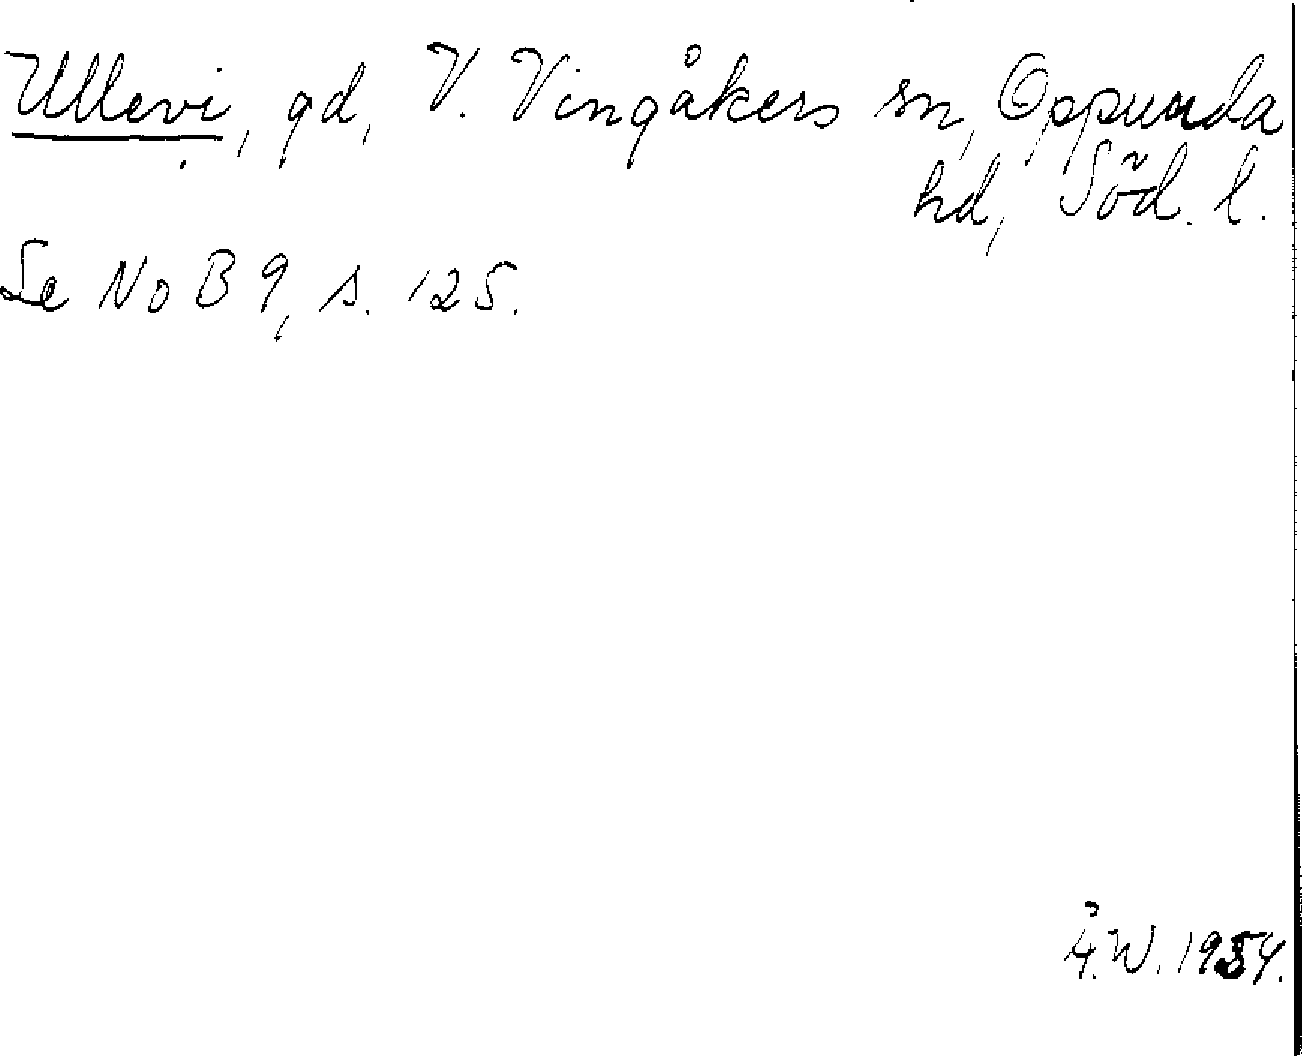 Ullevi, gd, V. Vingåkers sn, Oppunda
hd, Söd. l.
Se NoB 9, s. 125.
Å.W. 1954.